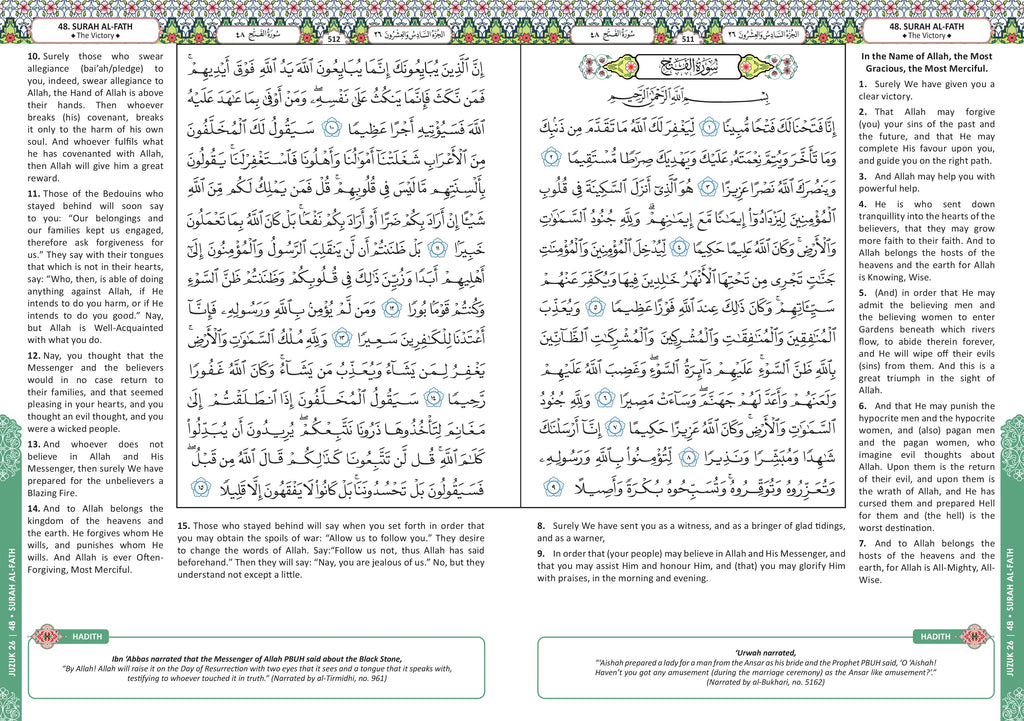 48. SURAH AL-FATH
The Victory
سُورَةُ الفَتْحِ ٤٨
511
الجُزْءُ السَّادِسُ وَالعِشْرُونَ ٢٦
سُورَةُ الفَتْحِ
بِسْمِ اللَّهِ الرَّحْمَٰنِ الرَّحِيمِ
إِنَّا فَتَحْنَا لَكَ فَتْحًا مُّبِينًا ١ لِّيَغْفِرَ لَكَ اللَّهُ مَا تَقَدَّمَ مِن ذَنبِكَ
وَمَا تَأَخَّرَ وَيُتِمَّ نِعْمَتَهُ عَلَيْكَ وَيَهْدِيَكَ صِرَاطًا مُّسْتَقِيمًا ٢
وَيَنصُرَكَ اللَّهُ نَصْرًا عَزِيزًا ٣ هُوَ الَّذِي أَنزَلَ السَّكِينَةَ فِي قُلُوبِ
الْمُؤْمِنِينَ لِيَزْدَادُوا إِيمَانًا مَّعَ إِيمَانِهِمْ وَلِلَّهِ جُنُودُ السَّمَاوَاتِ
وَالْأَرْضِ وَكَانَ اللَّهُ عَلِيمًا حَكِيمًا ٤ لِّيُدْخِلَ الْمُؤْمِنِينَ وَالْمُؤْمِنَاتِ
جَنَّاتٍ تَجْرِي مِن تَحْتِهَا الْأَنْهَارُ خَالِدِينَ فِيهَا وَيُكَفِّرَ عَنْهُمْ
سَيِّئَاتِهِمْ وَكَانَ ذَٰلِكَ عِندَ اللَّهِ فَوْزًا عَظِيمًا ٥ وَيُعَذِّبَ
الْمُنَافِقِينَ وَالْمُنَافِقَاتِ وَالْمُشْرِكِينَ وَالْمُشْرِكَاتِ الظَّانِّينَ
بِاللَّهِ ظَنَّ السَّوْءِ عَلَيْهِمْ دَائِرَةُ السَّوْءِ وَغَضِبَ اللَّهُ عَلَيْهِمْ
وَلَعَنَهُمْ وَأَعَدَّ لَهُمْ جَهَنَّمَ وَسَاءَتْ مَصِيرًا ٦ وَلِلَّهِ جُنُودُ
السَّمَاوَاتِ وَالْأَرْضِ وَكَانَ اللَّهُ عَزِيزًا حَكِيمًا ٧ إِنَّا أَرْسَلْنَاكَ
شَاهِدًا وَمُبَشِّرًا وَنَذِيرًا ٨ لِّتُؤْمِنُوا بِاللَّهِ وَرَسُولِهِ
وَتُعَزِّرُوهُ وَتُوَقِّرُوهُ وَتُسَبِّحُوهُ بُكْرَةً وَأَصِيلًا ٩
In the Name of Allah, the Most
Gracious, the Most Merciful.
1. Surely We have given you a
clear victory.
2. That Allah may forgive
(you) your sins of the past and
the future, and that He may
complete His favour upon you,
and guide you on the right path.
3. And Allah may help you with
powerful help.
4. He is who sent down
tranquillity into the hearts of the
believers, that they may grow
more faith to their faith. And to
Allah belongs the hosts of the
heavens and the earth for Allah
is Knowing, Wise.
5. (And) in order that He may
admit the believing men and
the believing women to enter
Gardens beneath which rivers
flow, to abide therein forever,
and He will wipe off their evils
(sins) from them. And this is a
great triumph in the sight of
Allah.
6. And that He may punish the
hypocrite men and the hypocrite
women, and (also) pagan men
and the pagan women, who
imagine evil thoughts about
Allah. Upon them is the return
of their evil, and upon them is
the wrath of Allah, and He has
cursed them and prepared Hell
for them and (the hell) is the
worst destination.
7. And to Allah belongs the
hosts of the heavens and the
earth, for Allah is All-Mighty, All-
Wise.
8. Surely We have sent you as a witness, and as a bringer of glad tidings,
and as a warner,
9. In order that (your people) may believe in Allah and His Messenger, and
that you may assist Him and honour Him, and (that) you may glorify Him
with praises, in the morning and evening.
HADITH
‘Urwah narrated,
“’Aishah prepared a lady for a man from the Ansar as his bride and the Prophet PBUH said, ‘O ‘Aishah!
Haven’t you got any amusement (during the marriage ceremony) as the Ansar like amusement?’.”
(Narrated by al-Bukhari, no. 5162)
JUZUK 26 | 48 • SURAH AL-FATH
48. SURAH AL-FATH
The Victory
سُورَةُ الفَتْحِ ٤٨
512
الجُزْءُ السَّادِسُ وَالعِشْرُونَ ٢٦
إِنَّ الَّذِينَ يُبَايِعُونَكَ إِنَّمَا يُبَايِعُونَ اللَّهَ يَدُ اللَّهِ فَوْقَ أَيْدِيهِمْ
فَمَن نَّكَثَ فَإِنَّمَا يَنكُثُ عَلَىٰ نَفْسِهِ وَمَنْ أَوْفَىٰ بِمَا عَاهَدَ عَلَيْهُ
اللَّهَ فَسَيُؤْتِيهِ أَجْرًا عَظِيمًا ١٠ سَيَقُولُ لَكَ الْمُخَلَّفُونَ
مِنَ الْأَعْرَابِ شَغَلَتْنَا أَمْوَالُنَا وَأَهْلُونَا فَاسْتَغْفِرْ لَنَا يَقُولُونَ
بِأَلْسِنَتِهِم مَّا لَيْسَ فِي قُلُوبِهِمْ قُلْ فَمَن يَمْلِكُ لَكُم مِّنَ اللَّهِ
شَيْئًا إِنْ أَرَادَ بِكُمْ ضَرًّا أَوْ أَرَادَ بِكُمْ نَفْعًا بَلْ كَانَ اللَّهُ بِمَا تَعْمَلُونَ
خَبِيرًا ١١ بَلْ ظَنَنتُمْ أَن لَّن يَنقَلِبَ الرَّسُولُ وَالْمُؤْمِنُونَ إِلَىٰ
أَهْلِيهِمْ أَبَدًا وَزُيِّنَ ذَٰلِكَ فِي قُلُوبِكُمْ وَظَنَنتُمْ ظَنَّ السَّوْءِ
وَكُنتُمْ قَوْمًا بُورًا ١٢ وَمَن لَّمْ يُؤْمِن بِاللَّهِ وَرَسُولِهِ فَإِنَّا
أَعْتَدْنَا لِلْكَافِرِينَ سَعِيرًا ١٣ وَلِلَّهِ مُلْكُ السَّمَاوَاتِ وَالْأَرْضِ
يَغْفِرُ لِمَن يَشَاءُ وَيُعَذِّبُ مَن يَشَاءُ وَكَانَ اللَّهُ غَفُورًا
رَّحِيمًا ١٤ سَيَقُولُ الْمُخَلَّفُونَ إِذَا انطَلَقْتُمْ إِلَىٰ
مَغَانِمَ لِتَأْخُذُوهَا ذَرُونَا نَتَّبِعْكُمْ يُرِيدُونَ أَن يُبَدِّلُوا
كَلَامَ اللَّهِ قُل لَّن تَتَّبِعُونَا كَذَٰلِكُمْ قَالَ اللَّهُ مِن قَبْلُ
فَسَيَقُولُونَ بَلْ تَحْسُدُونَنَا بَلْ كَانُوا لَا يَفْقَهُونَ إِلَّا قَلِيلًا ١٥
10. Surely those who swear
allegiance (bai’ah/pledge) to
you, indeed, swear allegiance to
Allah, the Hand of Allah is above
their hands. Then whoever
breaks (his) covenant, breaks
it only to the harm of his own
soul. And whoever fulfils what
he has covenanted with Allah,
then Allah will give him a great
reward.
11. Those of the Bedouins who
stayed behind will soon say
to you: “Our belongings and
our families kept us engaged,
therefore ask forgiveness for
us.” They say with their tongues
that which is not in their hearts,
say: “Who, then, is able of doing
anything against Allah, if He
intends to do you harm, or if He
intends to do you good.” Nay,
but Allah is Well-Acquainted
with what you do.
12. Nay, you thought that the
Messenger and the believers
would in no case return to
their families, and that seemed
pleasing in your hearts, and you
thought an evil thought, and you
were a wicked people.
13. And whoever does not
believe in Allah and His
Messenger, then surely We have
prepared for the unbelievers a
Blazing Fire.
14. And to Allah belongs the
kingdom of the heavens and
the earth. He forgives whom He
wills, and punishes whom He
wills. And Allah is ever Often-
Forgiving, Most Merciful.
15. Those who stayed behind will say when you set forth in order that
you may obtain the spoils of war: “Allow us to follow you.” They desire
to change the words of Allah. Say:“Follow us not, thus Allah has said
beforehand.” Then they will say: “Nay, you are jealous of us.” No, but they
understand not except a little.
HADITH
Ibn ‘Abbas narrated that the Messenger of Allah PBUH said about the Black Stone,
“By Allah! Allah will raise it on the Day of Resurrection with two eyes that it sees and a tongue that it speaks with,
testifying to whoever touched it in truth.” (Narrated by al-Tirmidhi, no. 961)
JUZUK 26 | 48 • SURAH AL-FATH